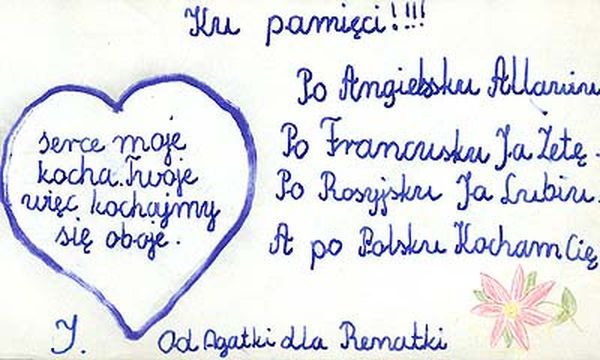 Ku pamięci!!!!
serce moje
kocha.Twoje
więc kochajmy
się oboje.
Po Angielsku Allawiu
Po Francusku Ja Żetę.
Po Rosyjsku Ja Lubiu.
A po Polsku Kocham Cię
J. Od Agatki dla Renatki